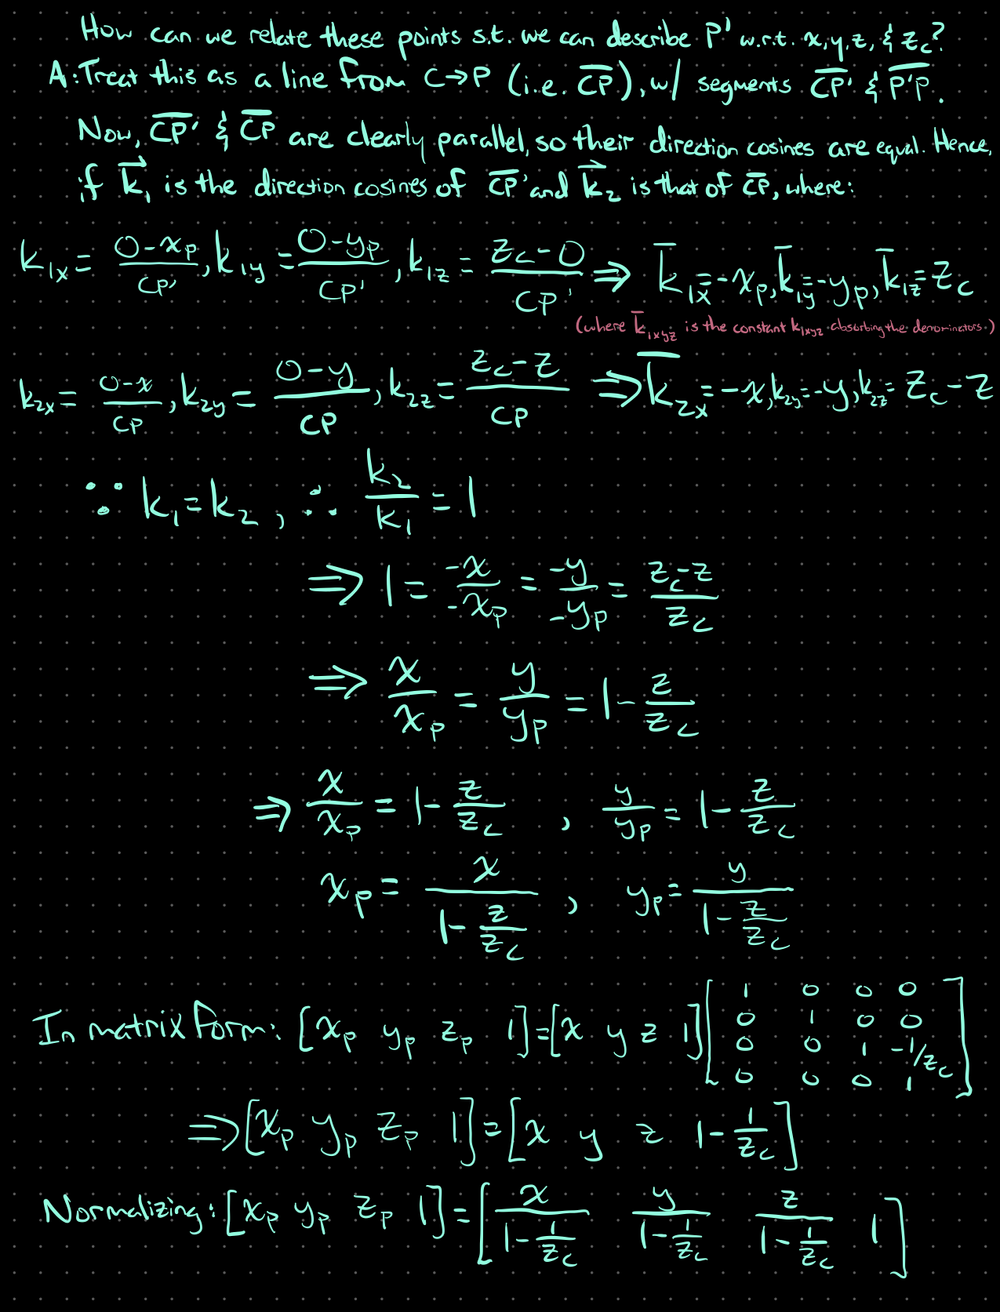 How can we relate these points s.t. we can describe P' w.r.t. x,y,z, & z_c?
A: Treat this as a line from C→P (i.e. \overline{CP}), w/ segments \overline{CP'} & \overline{P'P}.
Now, \overline{CP'} & \overline{CP} are clearly parallel, so their direction cosines are equal. Hence,
if \vec{k}_1 is the direction cosines of \overline{CP'} and \vec{k}_2 is that of \overline{CP}, where:
k_{1x} = \frac{0-x_p}{CP'}, k_{1y} = \frac{0-y_p}{CP'}, k_{1z} = \frac{z_c-0}{CP'} ⇒ \overline{k}_{1x} = -x_p, \overline{k}_{1y} = -y_p, \overline{k}_{1z} = z_c
(where \overline{k}_{1xyz} is the constant k_{1xyz} absorbing the denominators.)
k_{2x} = \frac{0-x}{CP}, k_{2y} = \frac{0-y}{CP}, k_{2z} = \frac{z_c-z}{CP} ⇒ \overline{k}_{2x} = -x, k_{2y} = -y, k_{2z} = z_c-z
∵ k_1 = k_2, ∴ \frac{k_2}{k_1} = 1
⇒ 1 = \frac{-x}{-x_p} = \frac{-y}{-y_p} = \frac{z_c-z}{z_c}
⇒ \frac{x}{x_p} = \frac{y}{y_p} = 1-\frac{z}{z_c}
⇒ \frac{x}{x_p} = 1-\frac{z}{z_c} , \frac{y}{y_p} = 1-\frac{z}{z_c}
x_p = \frac{x}{1-\frac{z}{z_c}} , y_p = \frac{y}{1-\frac{z}{z_c}}
In matrix form: [x_p y_p z_p 1] = [x y z 1] [1 0 0 0
0 1 0 0
0 0 1 -1/z_c
0 0 0 1]
⇒ [x_p y_p z_p 1] = [x y z 1-\frac{1}{z_c}]
Normalizing: [x_p y_p z_p 1] = [\frac{x}{1-\frac{1}{z_c}} \frac{y}{1-\frac{1}{z_c}} \frac{z}{1-\frac{1}{z_c}} 1]